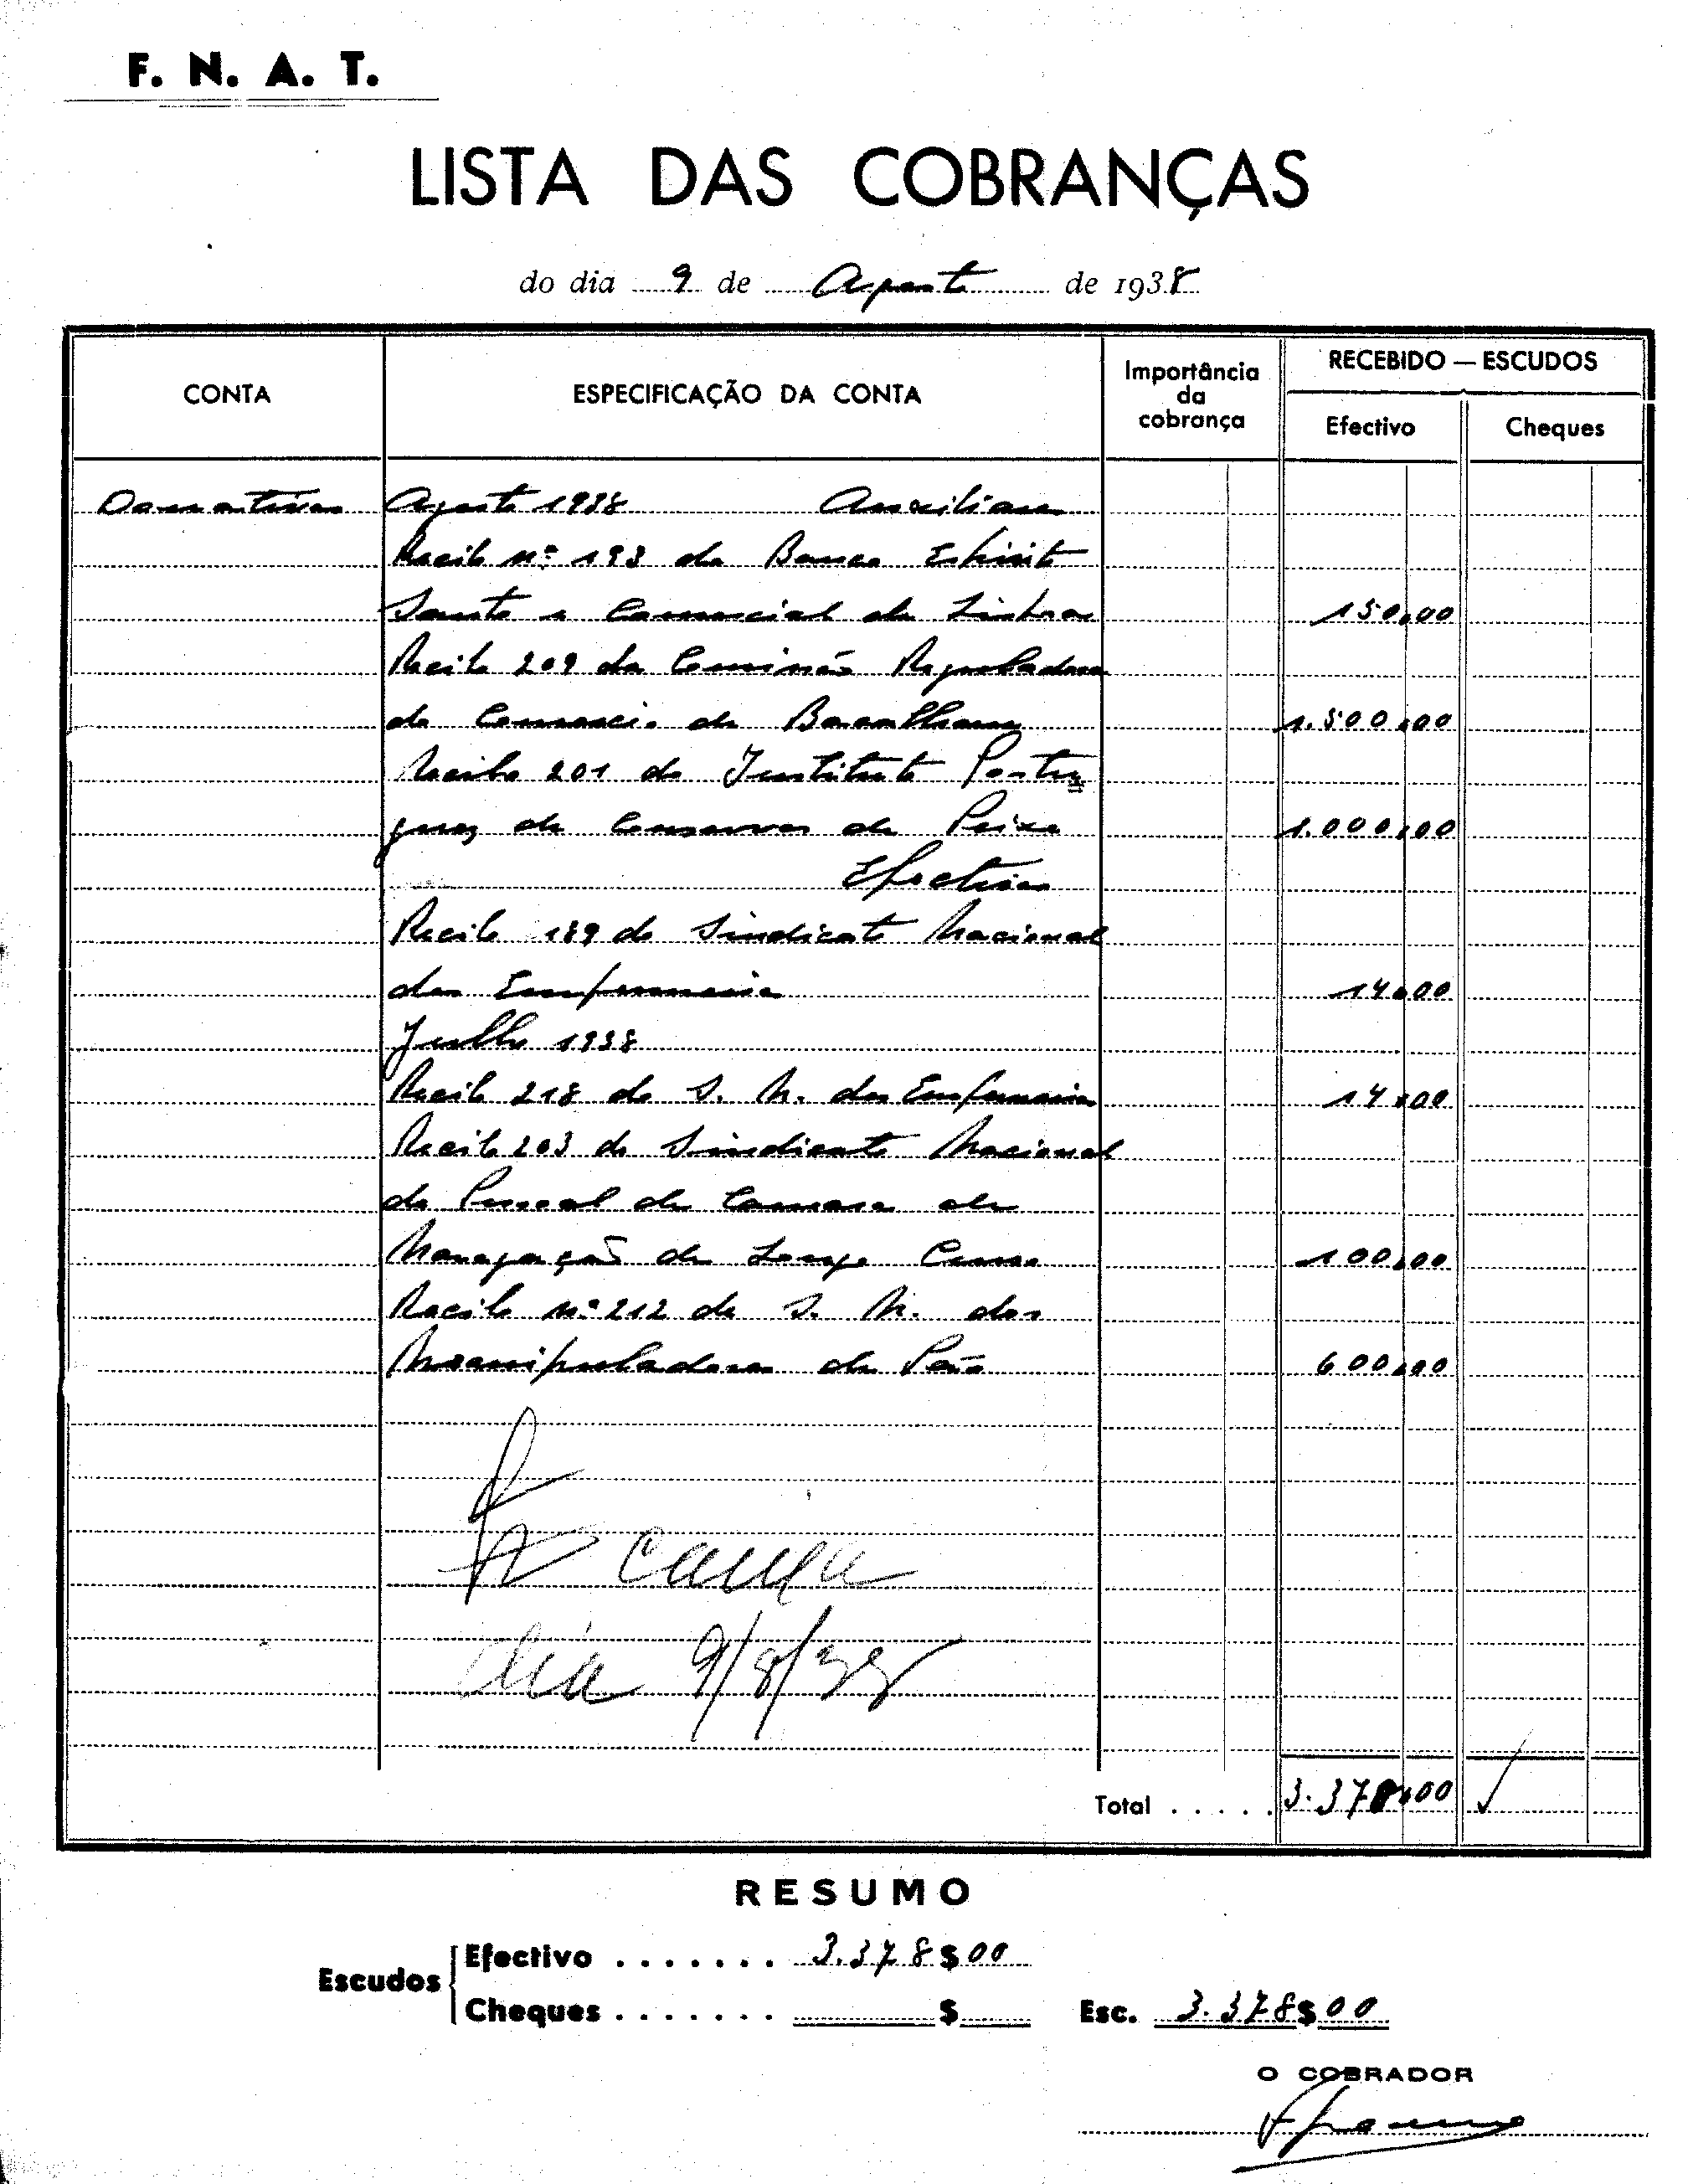 F. N. A. T.
LISTA DAS COBRANÇAS
do dia 9 de Agosto de 1938
CONTA
ESPECIFICAÇÃO DA CONTA
Importância
da
cobrança
RECEBIDO — ESCUDOS
Efectivo
Cheques
Donativos Agosto 1938 Auxiliares
Recibo nº 193 do Banco Espirito
Santo e Comercial de Lisboa 150,00
Recibo 209 da Comissão Reguladora
do Comercio de Bacalhau 1.500,00
Recibo 201 do Instituto Portu
guez de Conservas de Peixe 1.000,00
Efectivos
Recibo 189 do Sindicato Nacional
dos Enfermeiros 14,00
Julho 1938
Recibo 218 do S. N. dos Enfermeiros 14,00
Recibo 203 do Sindicato Nacional
do Pessoal de Camara da
Navegação de Longo Curso 100,00
Recibo nº 212 do S. N. dos
Manipuladores de Pão 600,00
caixa
dia 9/8/38
Total . . . . . 3.378,00
RESUMO
Escudos
Efectivo . . . . . . . 3.378$00
Cheques . . . . . . . $
Esc. 3.378$00
O COBRADOR